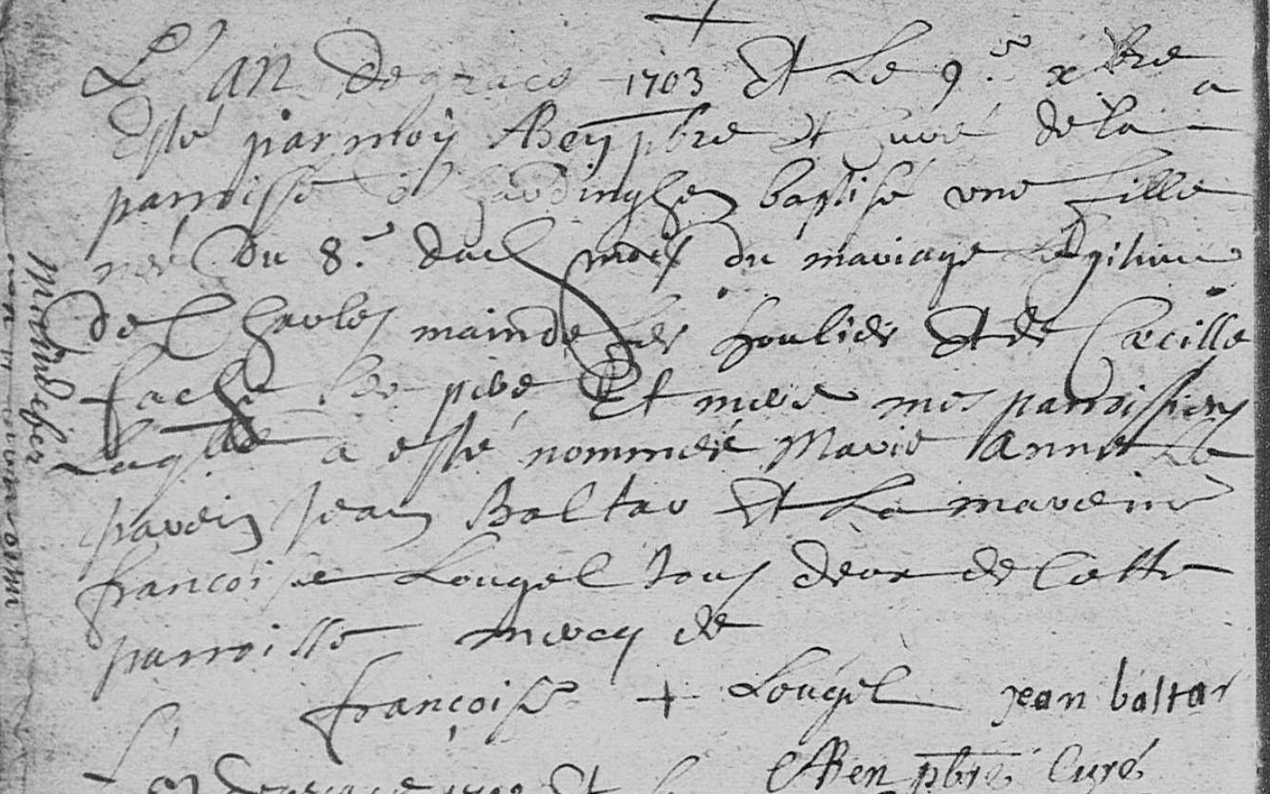 L'an de grace 1703 Et Le 9.e xbre a
Esté par moy ABeij pbre et Curé de la
parroisse d'hardinghen baptisé une fille
née du 8.e dud mois du mariage Legitime
de Charles mainde les houlier Et de Cecille
fache ses pere Et mere mes parroissiens
Laqlle a esté nommeé Marie Anne Le
parein jean Baltar Et La mareine
francoise Lougel tous deux de Cette
parroisse mercq de
françoise + Lougel jean baltar
ABeij pbre Curé
L'an de grace 1703 Et Le